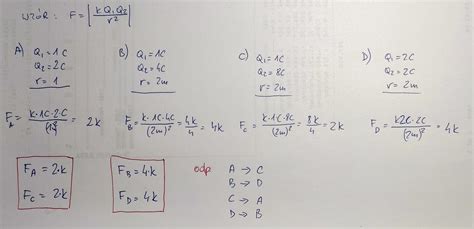 WZÓR: F = |kQ₁Q₂/r²|
A) Q₁=1C
Q₂=2C
r=1
B) Q₁=1C
Q₂=4C
r=2m
C) Q₁=1C
Q₂=8C
r=2m
D) Q₁=2C
Q₂=2C
r=2m
F_A = k·1C·2C/(1)² = 2k
F_B = k·1C·4C/(2m)² = 4k/4 = 4k
F_C = k·1C·8C/(2m)² = 8k/4 = 2k
F_D = k2C·2C/(2m)² = 4k
F_A = 2·k
F_C = 2·k
F_B = 4·k
F_D = 4k
odp. A → C
B → D
C → A
D → B